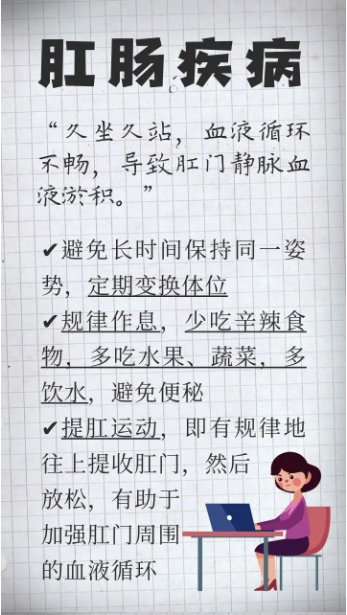 肛肠疾病
“久坐久站，血液循环
不畅，导致肛门静脉血
液淤积。”
✔避免长时间保持同一姿
势，定期变换体位
✔规律作息，少吃辛辣食
物，多吃水果、蔬菜，多
饮水，避免便秘
✔提肛运动，即有规律地
往上提收肛门，然后
放松，有助于
加强肛门周围
的血液循环